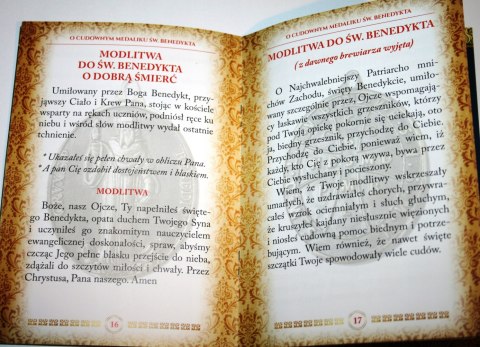 O CUDOWNYM MEDALIKU ŚW. BENEDYKTA
MODLITWA
DO ŚW. BENEDYKTA
O DOBRĄ ŚMIERĆ
Umiłowany przez Boga Benedykt, przy-
jąwszy Ciało i Krew Pana, stojąc w kościele
wsparty na rękach uczniów, podniósł ręce ku
niebu i wśród słów modlitwy wydał ostatnie
tchnienie.
* Ukazałeś się pełen chwały w obliczu Pana.
* A pan Cię ozdobił dostojeństwem i blaskiem.
MODLITWA
Boże, nasz Ojcze, Ty napełniłeś święte-
go Benedykta, opata duchem Twojego Syna
i uczyniłeś go znakomitym nauczycielem
ewangelicznej doskonałości, spraw, abyśmy
czcząc Jego pełne blasku przejście do nieba,
zdążali do szczytów miłości i chwały. Przez
Chrystusa, Pana naszego. Amen
16
O CUDOWNYM MEDALIKU ŚW. BENEDYKTA
MODLITWA DO ŚW. BENEDYKTA
( z dawnego brewiarza wyjęta)
O Najchwalebniejszy Patriarcho mni-
chów Zachodu, święty Benedykcie, umiło-
wany szczególnie przez, Ojcze wspomagają-
cy łaskawie wszystkich grzeszników, którzy
pod Twoją opiekę pokornie się uciekają, oto
ja, biedny grzesznik, przychodzę do Ciebie.
Przychodzę do Ciebie, ponieważ wiem, iż
każdy, kto Cię z pokorą wzywa, bywa przez
Ciebie wysłuchany i pocieszony.
Wiem, że Twoje modlitwy wskrzeszały
umarłych, że uzdrawiałeś chorych, przywra-
całeś wzrok ociemniałym i słuch głuchym,
że kruszyłeś kajdany niesłusznie więzionych
i niosłeś cudowną pomoc biednym i potrze-
bującym. Wiem również, że nawet święte
szczątki Twoje spowodowały wiele cudów.
17